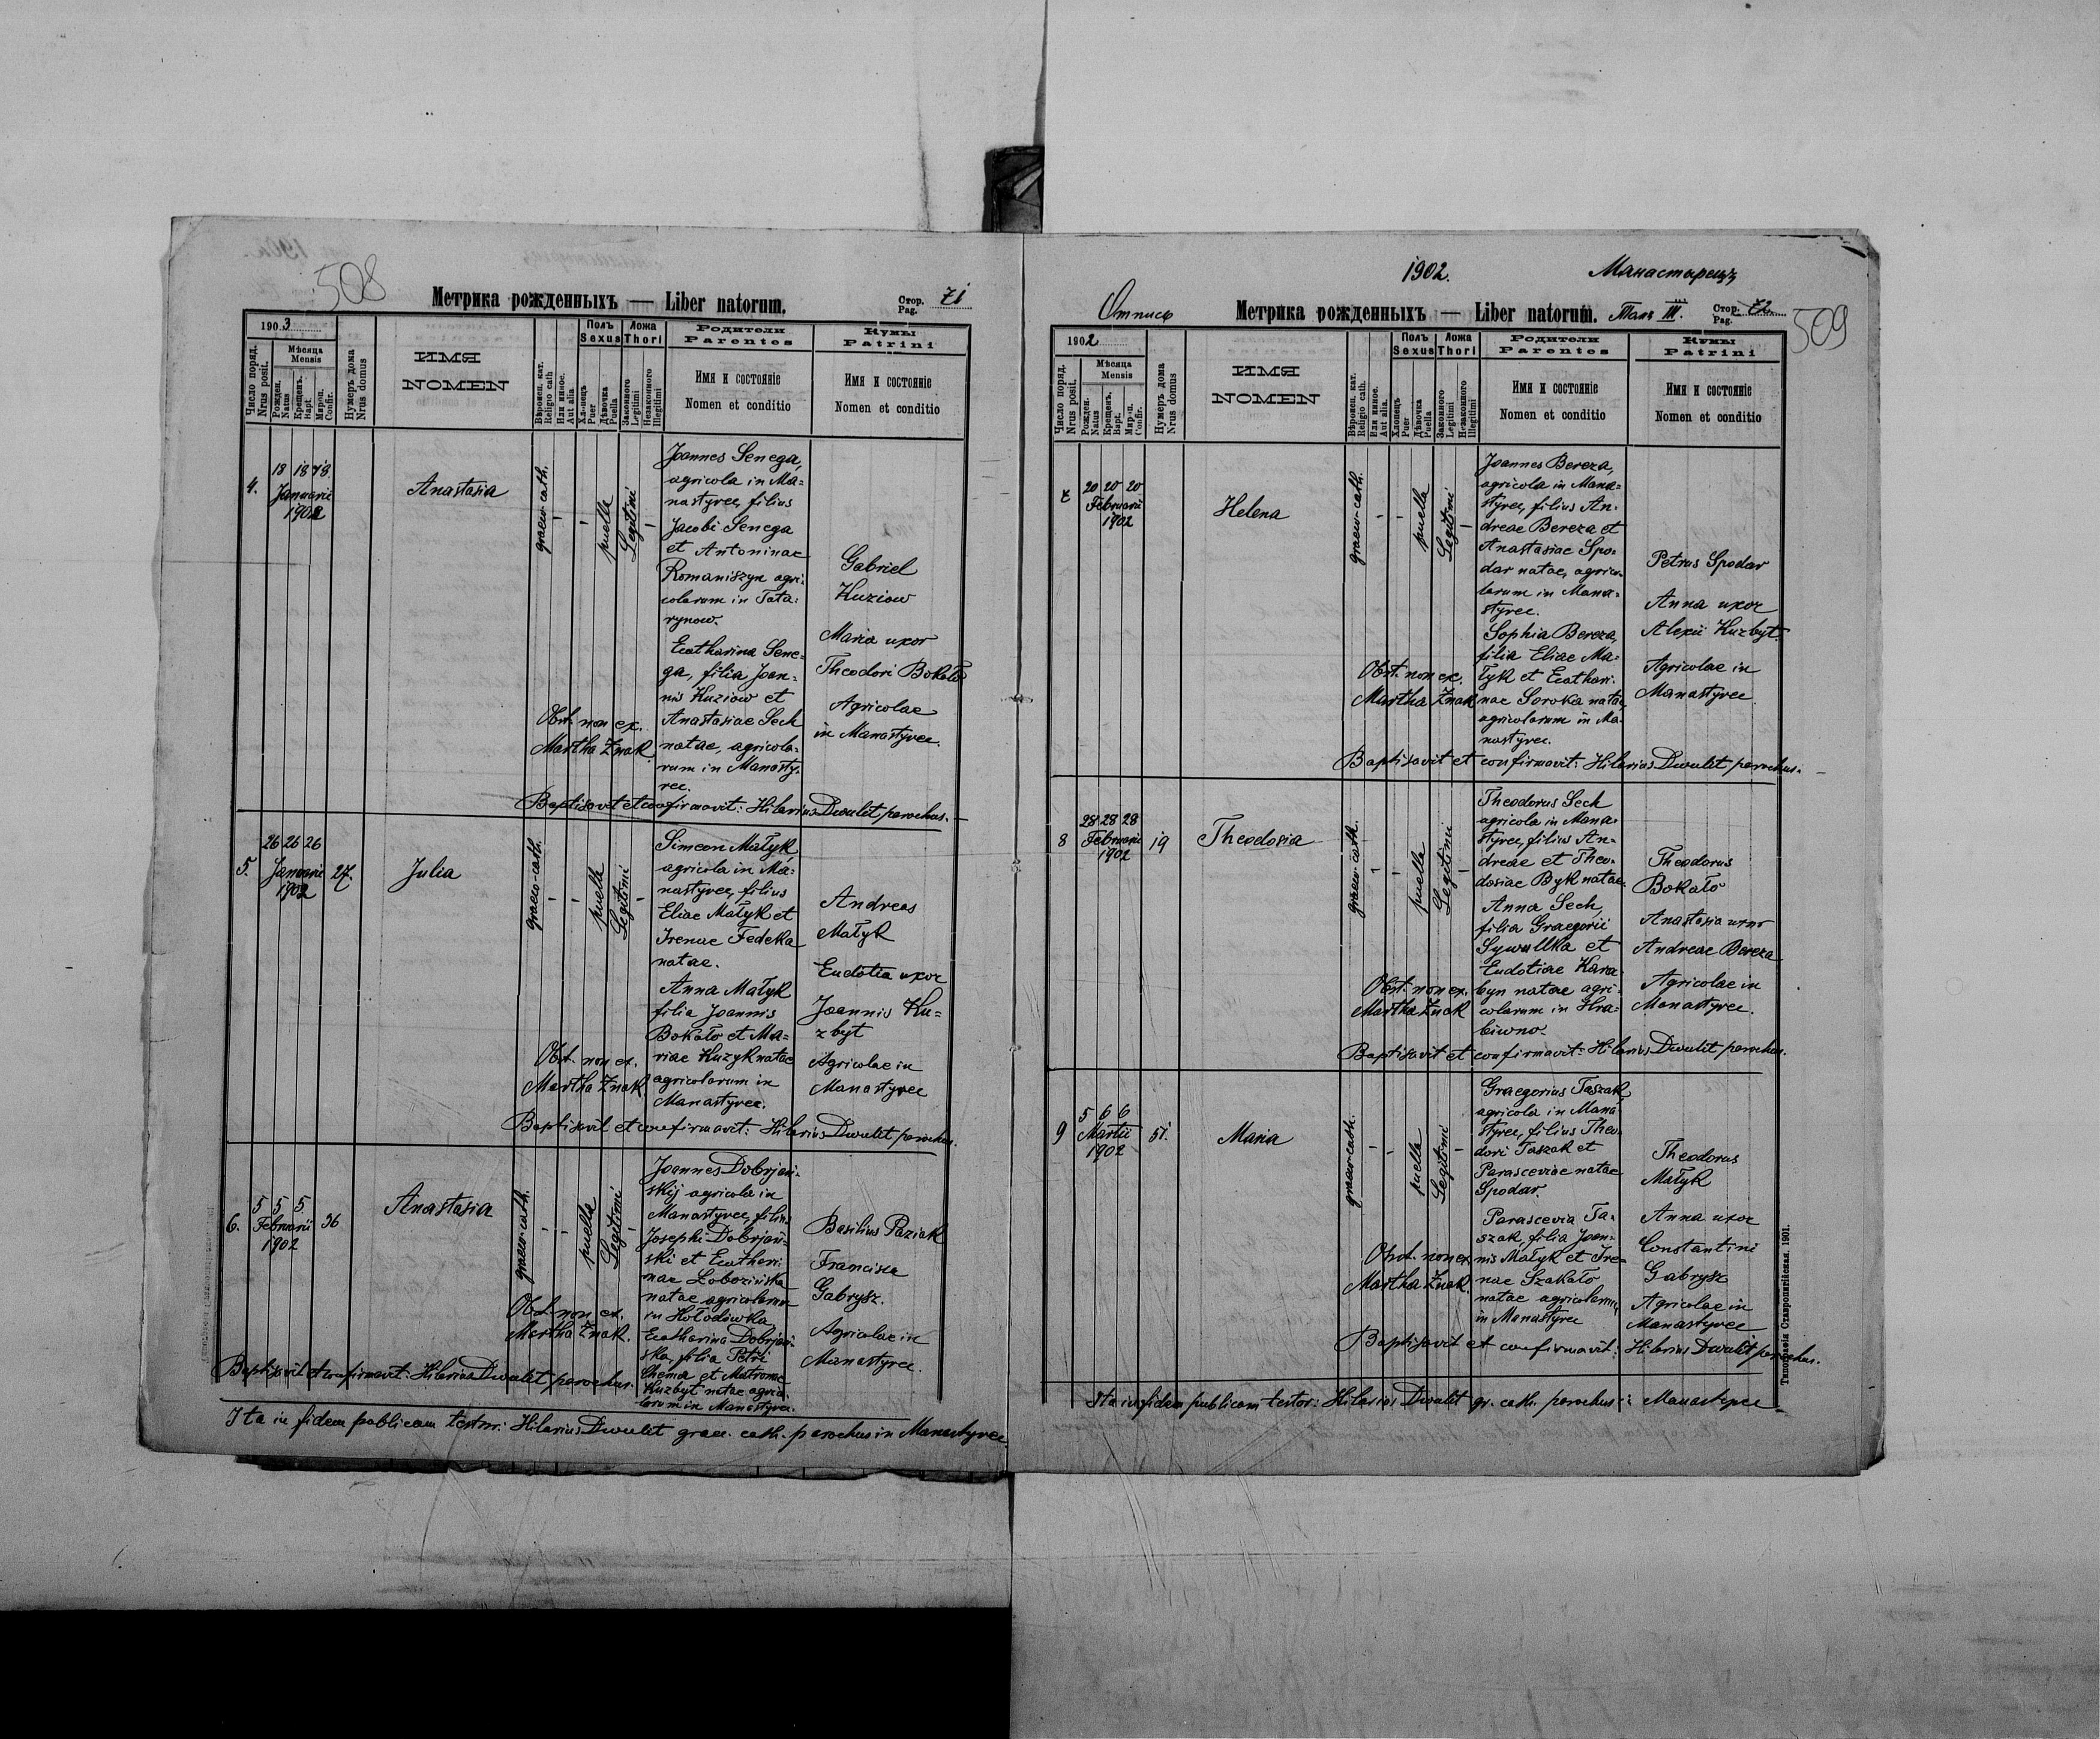 508
Метрика рожденныхъ — Liber natorum.
Стор.
Pag.
71
1903
Число поряд.
Nrus posit.
Мѣсяца
Mensis
Рожден.
Natus
Крещенъ.
Bapt.
Мѵроп.
Confir.
Нумеръ дома
Nrus domus
ИМЯ
NOMEN
Вѣроисп. кат.
Religio cath
Или иное.
Aut alia.
Полъ
Sexus
Хлопецъ
Puer
Дѣвочка
Puella
Ложа
Thori
Законного
Legitimi
Незаконного
Illegitimi
Родители
Parentes
Имя и состояніе
Nomen et conditio
Кумы
Patrini
Имя и состояніе
Nomen et conditio
4.
18 18 18
Januarii
1902
Anastasia
graeco-cath.
-
-
puella
Legitimi
-
Joannes Senega,
agricola in Ma=
nastyrec, filius
Jacobi Senega
et Antoninae
Romaniszyn agri=
colarum in Tata=
rynow.
Ecatharina Sene=
ga, filia Joan=
nis Kuziow et
Anastasiae Sech
natae, agricola=
rum in Manasty=
rec.
Gabriel
Kuziow
Maria uxor
Theodori Bokało
Agricolae
in Manastyrec.
Obst. non ex.
Martha Znak.
Baptisavit et confirmavit: Hilarius Dwulit parochus.
5.
26 26 26
Januarii
1902
27.
Julia
graeco-cath.
-
-
puella
Legitimi
-
Simeon Małyk
agricola in Ma=
nastyrec, filius
Eliae Małyk et
Irenae Fedeka
natae.
Anna Małyk
filia Joannis
Bokało et Ma=
riae Kuzyk natae
agricolarum in
Manastyrec.
Andreas
Małyk
Eudotia uxor
Joannis Ku=
zbyt
Agricolae in
Manastyrec
Obst. non ex.
Martha Znak.
Baptisavit et confirmavit: Hilarius Dwulit parochus.
6.
5 5 5.
Februarii
1902
36
Anastasia
graeco-cath.
-
-
puella
Legitimi
-
Joannes Dobrjan=
skij agricola in
Manastyrec, filius
Josephi Dobrjań=
ski et Ecathari=
nae Łobozińska
natae agricolarum
in Hołodówka
Ecatharina Dobrjań=
ska, filia Petri
Chema et Matronae
Kuzbyt natae agrico=
larum in Manastyrec.
Basilius Paziak
Francisca
Gabrysz.
Agricolae in
Manastyrec.
Obst. non ex.
Martha Znak.
Baptisavit et confirmavit: Hilarius Dwulit parochus.
Ita in fidem publicam testor: Hilarius Dwulit graec. cath. parochus in Manastyrec.
1902.
Манастырець
509
Отпись
Метрика рожденныхъ — Liber natorum.
Томъ III.
Стор.
Pag.
72
1902
Число поряд.
Nrus posit.
Мѣсяца
Mensis
Рожден.
Natus
Крещенъ.
Bapt.
Мѵр-п.
Confir.
Нумеръ дома
Nrus domus
ИМЯ
NOMEN
Вѣроисп. кат.
Religio cath.
Или иное.
Aut alia.
Полъ
Sexus
Хлопецъ
Puer
Дѣвочка
Puella
Ложа
Thori
Законного
Legitimi
Незаконного
Illegitimi
Родители
Parentes
Имя и состояніе
Nomen et conditio
Кумы
Patrini
Имя и состояніе
Nomen et conditio
7
20 20 20
Februarii
1902
Helena
graeco-cath.
-
-
puella
Legitimi
-
Joannes Bereza,
agricola in Mana=
styrec, filius An=
dreae Bereza et
Anastasiae Spo=
dar natae, agrico=
larum in Mana=
styrec.
Sophia Bereza,
filia Eliae Ma=
łyk et Ecathari=
nae Soroka natae,
agricolarum in Ma=
nastyrec.
Petrus Spodar
Anna uxor
Alexii Kuzbyt.
Agricolae in
Manastyrec
Obst. non ex.
Martha Znak
Baptisavit et confirmavit: Hilarius Dwulit parochus.
8
28 28 28
Februarii
1902
19
Theodosia
graeco-cath.
-
-
puella
Legitimi
-
Theodorus Sech
agricola in Mana=
styrec, filius An=
dreae et Theo=
dosiae Byk natae
Anna Sech,
filia Graegorii
Sywullka et
Eudotiae Kara=
byn natae agri=
colarum in Hra=
biwno.
Theodorus
Bokało
Anastasia uxor
Andreae Bereza
Agricolae in
Manastyrec.
Obst. non ex.
Martha Znak
Baptisavit et confirmavit: Hilarius Dwulit parochus.
9
5 6 6
Martii
1902
51.
Maria
graeco-cath.
-
-
puella
Legitimi
-
Graegorius Taszak,
agricola in Mana=
styrec, filius Theo=
dori Taszak et
Parasceviae natae
Spodar.
Parascevia Ta=
szak, filia Joan=
nis Małyk et Ire=
nae Szakało
natae agricolarum
in Manastyrec
Theodorus
Małyk
Anna uxor
Constantini
Gabrysz
Agricolae in
Manastyrec
Obst. non ex
Martha Znak.
Baptisavit et confirmavit: Hilarius Dwulit parochus.
Ita in fidem publicam testor: Hilarius Dwulit gr. cath. parochus in Manastyrec
Типографія Ставропигійская. 1901.